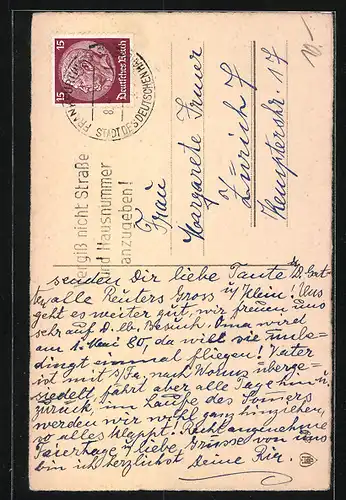 10.-
15
15
Deutsches Reich
FRANKFURT
STADT DES DEUTSCHEN
ergiß nicht Straße
und Hausnummer
anzugeben!
Frau
Margarete Irmer
Zürich 7
Kempterstr. 17
senden Dir liebe Tante
alle Reuters Gross u. Klein! Uns
geht es weiter gut, wir freuen uns
sehr auf D. lb. Besuch. Oma wird
am 1. Mai 80, da will sie unbe-
dingt einmal fliegen! Vater
ist mit nach Worms überge-
siedelt, fährt aber alle Tage hin u.
zurück, im Laufe des Somers
werden wir wohl ganz hinziehen,
wo alles klappt! Recht angenehme
Feiertage u. liebe Grüsse von uns
bin ich herzlichst Deine Ria.